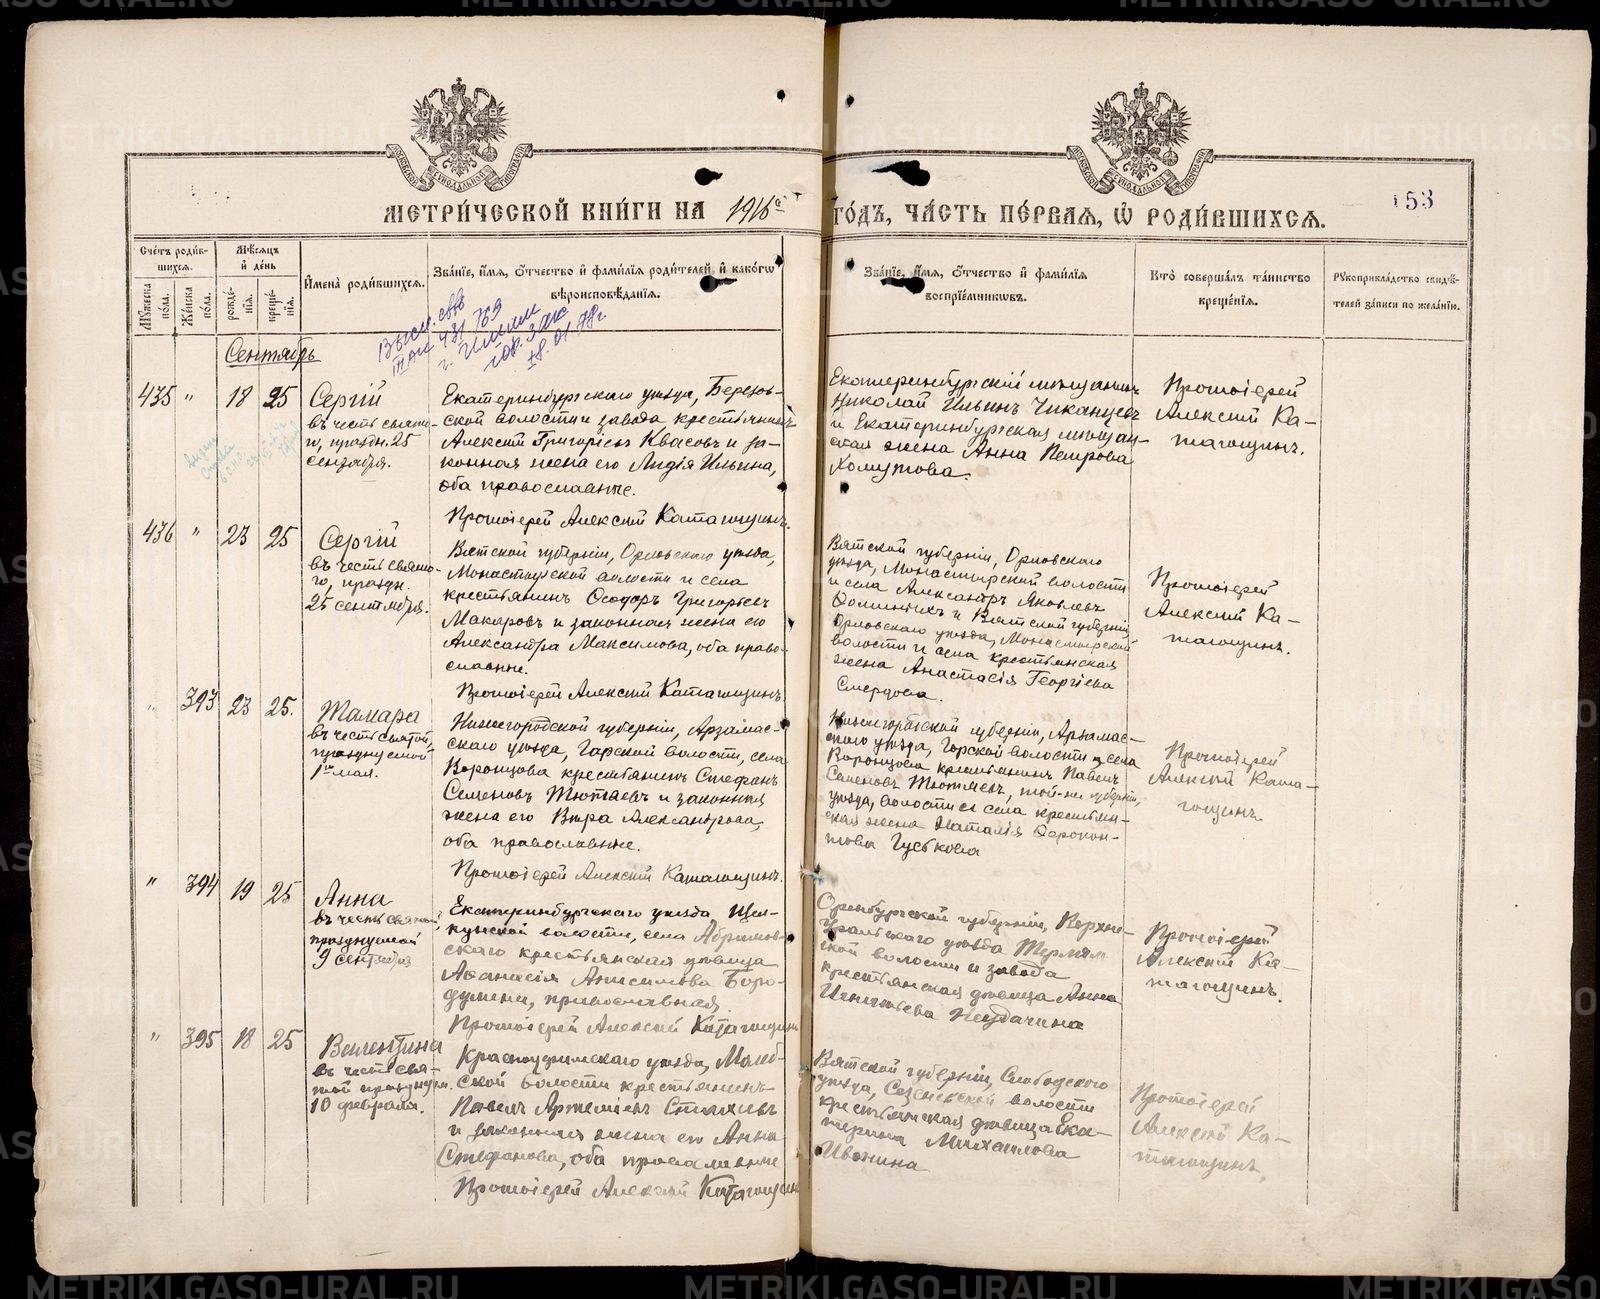 METRIKI.GASO-URAL.RU
МЕТРИ́ЧЕСКОЙ КНИ́ГИ НА 1916 й
ГО́ДЪ, ЧА́СТЬ ПЕ́РВАЯ, Ѡ҆ РОДИ́ВШИХСЯ.
153
Сче́тъ роди́в-
шихся.
Мѣ́сяцъ
и҆ де́нь
Му́жеска
по́ла.
Же́нска
по́ла.
рожде́-
нїя.
креще́-
нїя.
И҆мена̀ роди́вшихся.
Зва́нїе, и҆́мя, ѻ҆́тчество и҆ фами́лїя роди́телей, и҆ како́гѡ
вѣроисповѣ́данїѧ.
Зва́нїе, и҆́мя, ѻ҆́тчество и҆ фами́лїя
воспрїе́мникѡвъ.
Кто̀ соверша́лъ та́инство
креще́нїя.
Рꙋкоприкла́дство свидѣ́-
телей за́писи по жела́нїю.
Сентябрь
435 " 18 25
Сергій
въ честь свято-
го, праздн. 25
сентября.
Екатеринбургскаго уѣзда, Березов-
ской волости и завода крестьянинъ
Алексій Григорьевъ Квасовъ и за-
конная жена его Лидія Ильина,
оба православные.
Протоіерей Алексій Катагощинъ.
Екатеринбургскій мѣщанинъ
Николай Ильинъ Чиканцевъ
и Екатеринбургская мѣщан-
ская жена Анна Петрова
Хомутова.
Протоіерей
Алексій Ка-
тагощинъ.
436 " 23 25
Сергій
въ честь свято-
го, праздн.
25 сентября.
Вятской губерніи, Орловскаго уѣзда,
Монастырской волости и села
крестьянинъ Ѳеодоръ Григорьевъ
Макаровъ и законная жена его
Александра Максимова, оба право-
славные.
Протоіерей Алексій Катагощинъ
Вятской губерніи, Орловскаго
уѣзда, Монастырской волости
и села Александръ Яковлевъ
Ѳоминыхъ и Вятской губерніи,
Орловскаго уѣзда, Монастырской
волости и села крестьянская
жена Анастасія Георгіева
Смердова.
Протоіерей
Алексій Ка-
тагощинъ.
" 393 23 25.
Тамара
въ честь святой,
празднуемой
1го мая.
Нижегородской губерніи, Арзамас-
скаго уѣзда, Горской волости, села
Воронцова крестьянинъ Стефанъ
Семеновъ Тютяевъ и законная
жена его Вѣра Александрова,
оба православные.
Протоіерей Алексій Катагощинъ.
Нижегородской губерніи, Арзамас-
скаго уѣзда, Горской волости и села
Воронцова крестьянинъ Павелъ
Семеновъ Тютяевъ, той-же губерніи,
уѣзда, волости и села крестьян-
ская жена Наталія
Гуськова
Протоіерей
Алексій Ката-
гощинъ.
" 394 19 25
Анна
въ честь святой,
празднуемой
9 сентября
Екатеринбургскаго уѣзда Щел-
кунской волости, села Абрамов-
скаго крестьянская дѣвица
Аѳанасія Анисимова Боро-
дулина, православная.
Протоіерей Алексій Катагощинъ
Оренбургской губерніи, Верхне-
уральскаго уѣзда
волости и завода
крестьянская дѣвица Анна
Игнатьева Неудачина
Протоіерей
Алексій Ка-
тагощинъ.
" 395 18 25
Валентина
въ честь свя-
той празднуем.
10 февраля.
Красноуфимскаго уѣзда, Молеб-
ской волости крестьянинъ
Павелъ Артемьевъ Стахіевъ
и законная жена его Анна
Стефанова, оба православные
Протоіерей Алексій Катагощинъ
Вятской губерніи, Слободского
уѣзда, Сезеневской волости
крестьянская дѣвица Ека-
терина Михаилова
Ивонина
Протоіерей
Алексій Ка-
тагощинъ.